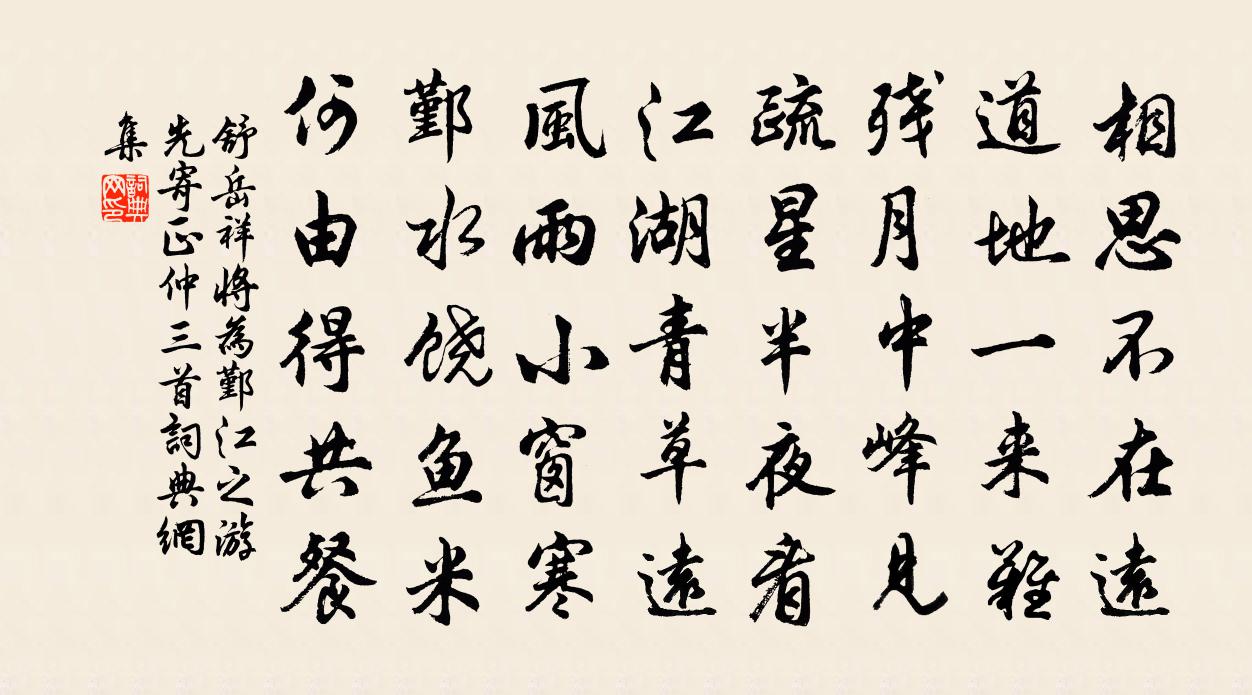 相思不在遠
道地一来難
残月中峰見
疏星半夜看
江湖青草遠
風雨小窗寒
鄞水饶鱼米
何由得共餐
舒岳祥將為鄞江之游
先寄正仲三首詞典網
集
詞典
网印